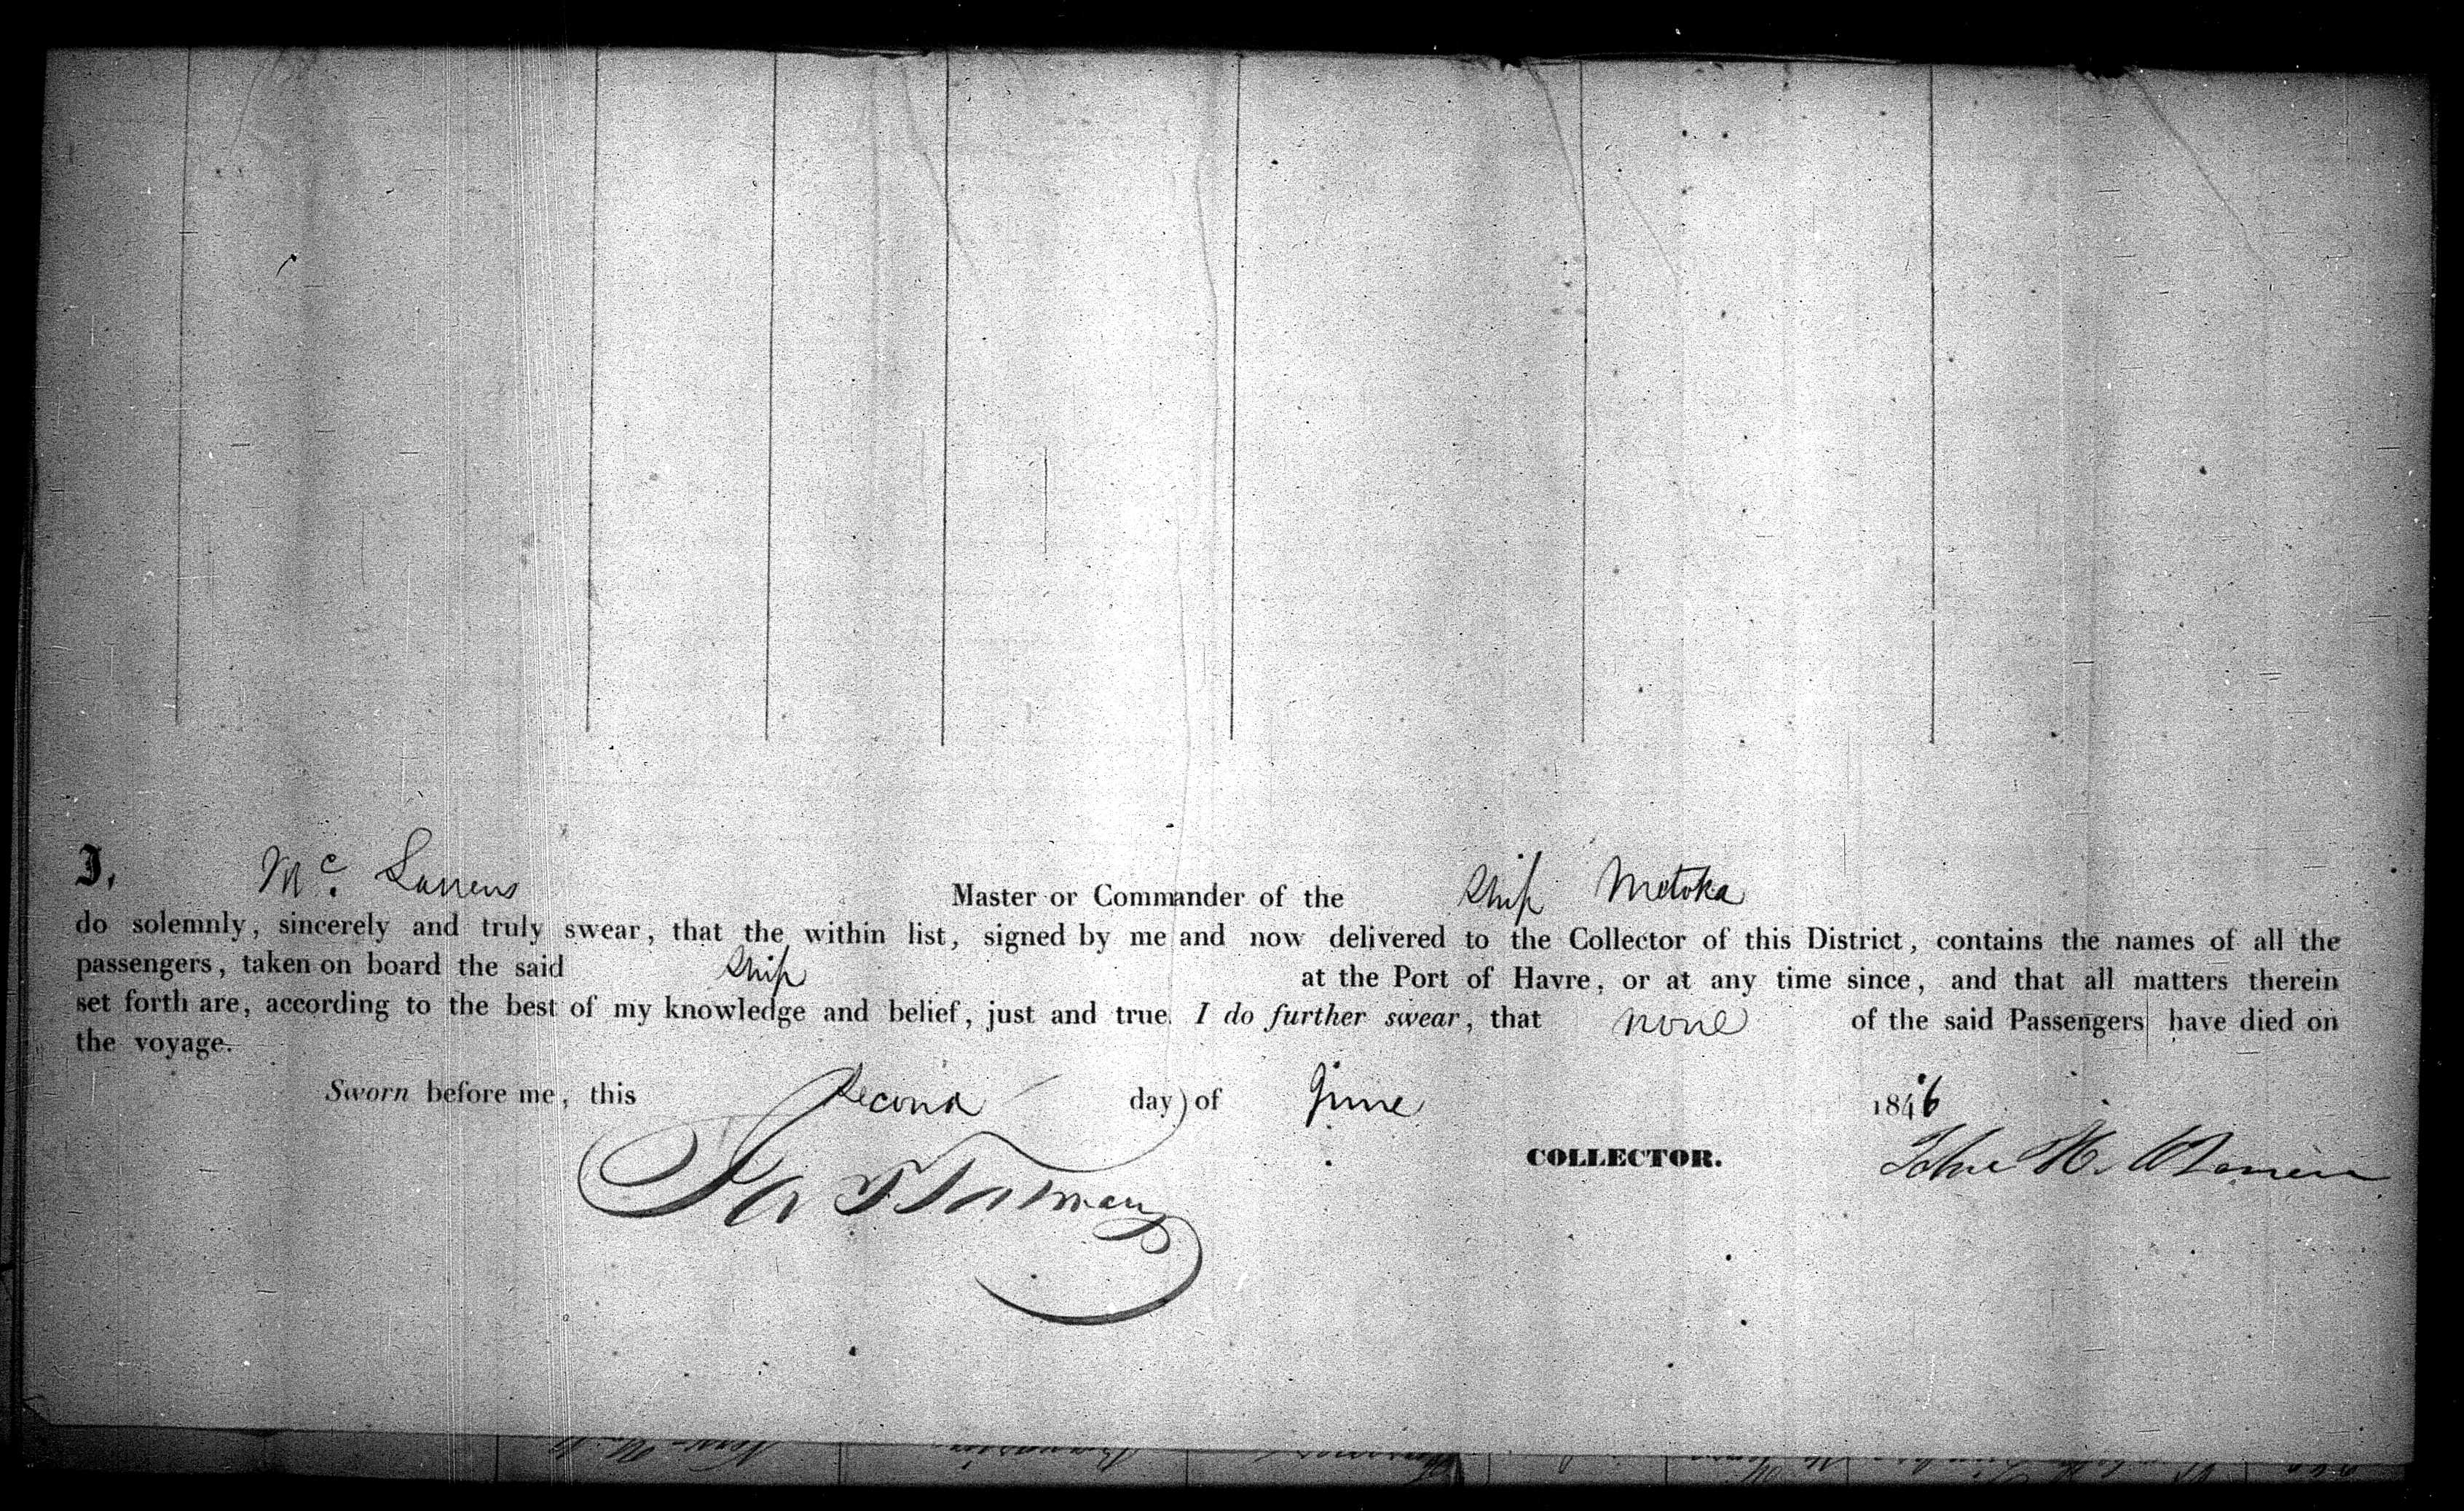 I, Mc. Larrens Master or Commander of the Ship Metoka
do solemnly, sincerely and truly swear, that the within list, signed by me and now delivered to the Collector of this District, contains the names of all the
passengers, taken on board the said Ship at the Port of Havre, or at any time since, and that all matters therein
set forth are, according to the best of my knowledge and belief, just and true. I do further swear, that none of the said Passengers have died on
the voyage.
Sworn before me, this Second day of June 1846
COLLECTOR. John H.